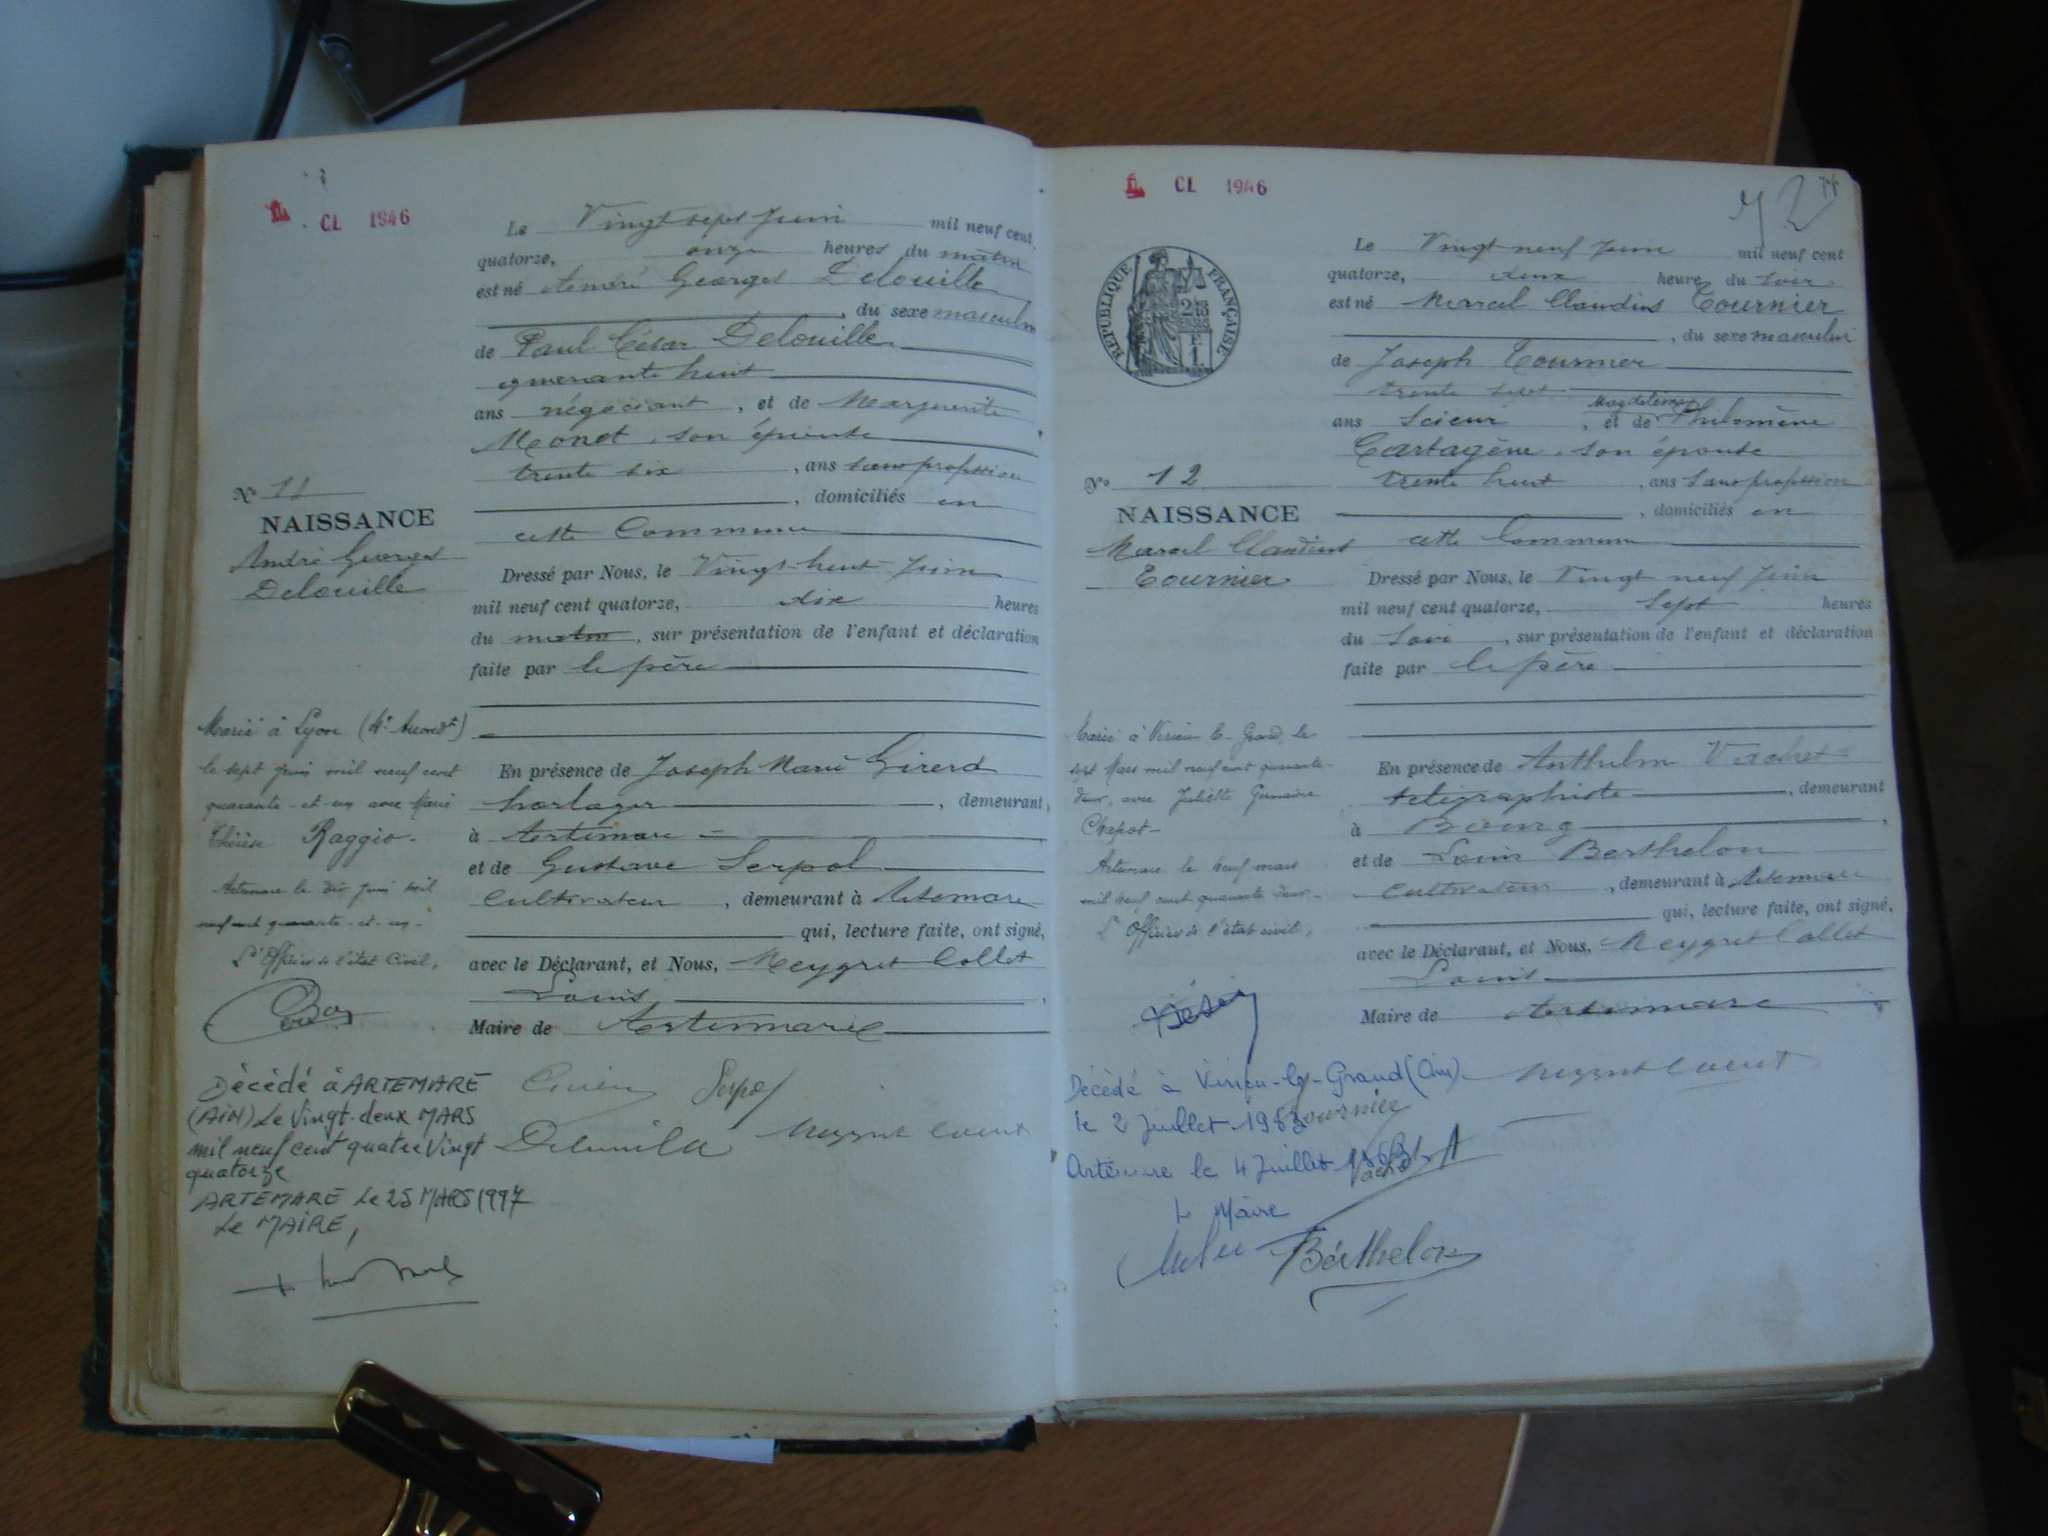 CL 1946
Le Vingt sept Juin mil neuf cent
quatorze, onze heures du matin
est né André Georges Delouille
, du sexe masculin
de Paul César Delouille
quarante huit
ans négociant, et de Marguerite
Monet, son épouse
trente six, ans sans profession
, domiciliés en
cette Commune
Nº 11
NAISSANCE
André Georges
Delouille
Dressé par Nous, le Vingt-huit Juin
mil neuf cent quatorze, dix heures
du matin, sur présentation de l'enfant et déclaration
faite par le père
En présence de Joseph Marie Girerd
horloger, demeurant,
à Artemare
et de Gustave Serpol
Cultivateur, demeurant à Artemare
qui, lecture faite, ont signé,
avec le Déclarant, et Nous, Meygret Collet
Louis,
Maire de Artemare
Marié à Lyon (4e Arrondt)
le sept Juin mil neuf cent
quarante-et-un avec Marie
Thérèse Raggio.
Artemare le dix Juin mil
neuf cent quarante-et-un.
L'Officier de l'état Civil,
Décédé à ARTEMARE
(AIN) Le Vingt-deux MARS
mil neuf cent quatre Vingt
quatorze
ARTEMARE Le 25 MARS 1997
Le MAIRE,
Serpol
Delouille
CL 1946
RÉPUBLIQUE FRANÇAISE
Le Vingt neuf Juin mil neuf cent
quatorze, deux heures du soir
est né Marcel Claudius Tournier
, du sexe masculin
de Joseph Tournier
trente sept
Magdeleine
ans Scieur, et de Philomène
Cartagène, son épouse
trente huit, ans sans profession
, domiciliés en
cette Commune
No 12
NAISSANCE
Marcel Claudius
Tournier
Dressé par Nous, le Vingt neuf Juin
mil neuf cent quatorze, Sept heures
du Soir, sur présentation de l'enfant et déclaration
faite par le père
En présence de Anthelme Vachet
télégraphiste, demeurant
à Bourg,
et de Louis Berthelon
Cultivateur, demeurant à Artemare
qui, lecture faite, ont signé,
avec le Déclarant, et Nous, Meygret Collet
Louis
Maire de Artemare
Marié à Virieu-le-Grand, le
sept Mars mil neuf cent quarante-
deux, avec Juliette Germaine
Chapot-
Artemare le neuf mars
mil neuf cent quarante deux.
L'Officier de l'état civil,
Décédé à Virieu-le-Grand (Ain)
le 2 Juillet 1963
Tournier
Artemare le 4 Juillet 1963
Vachet
Le Maire
Berthelon